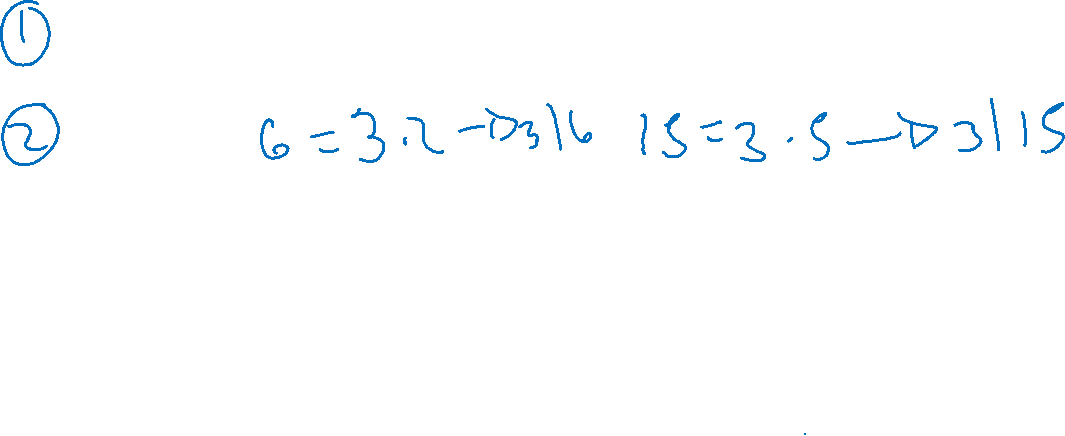 ①
② 6 = 3 · 2 → 3 | 6 15 = 3 · 5 → 3 | 15